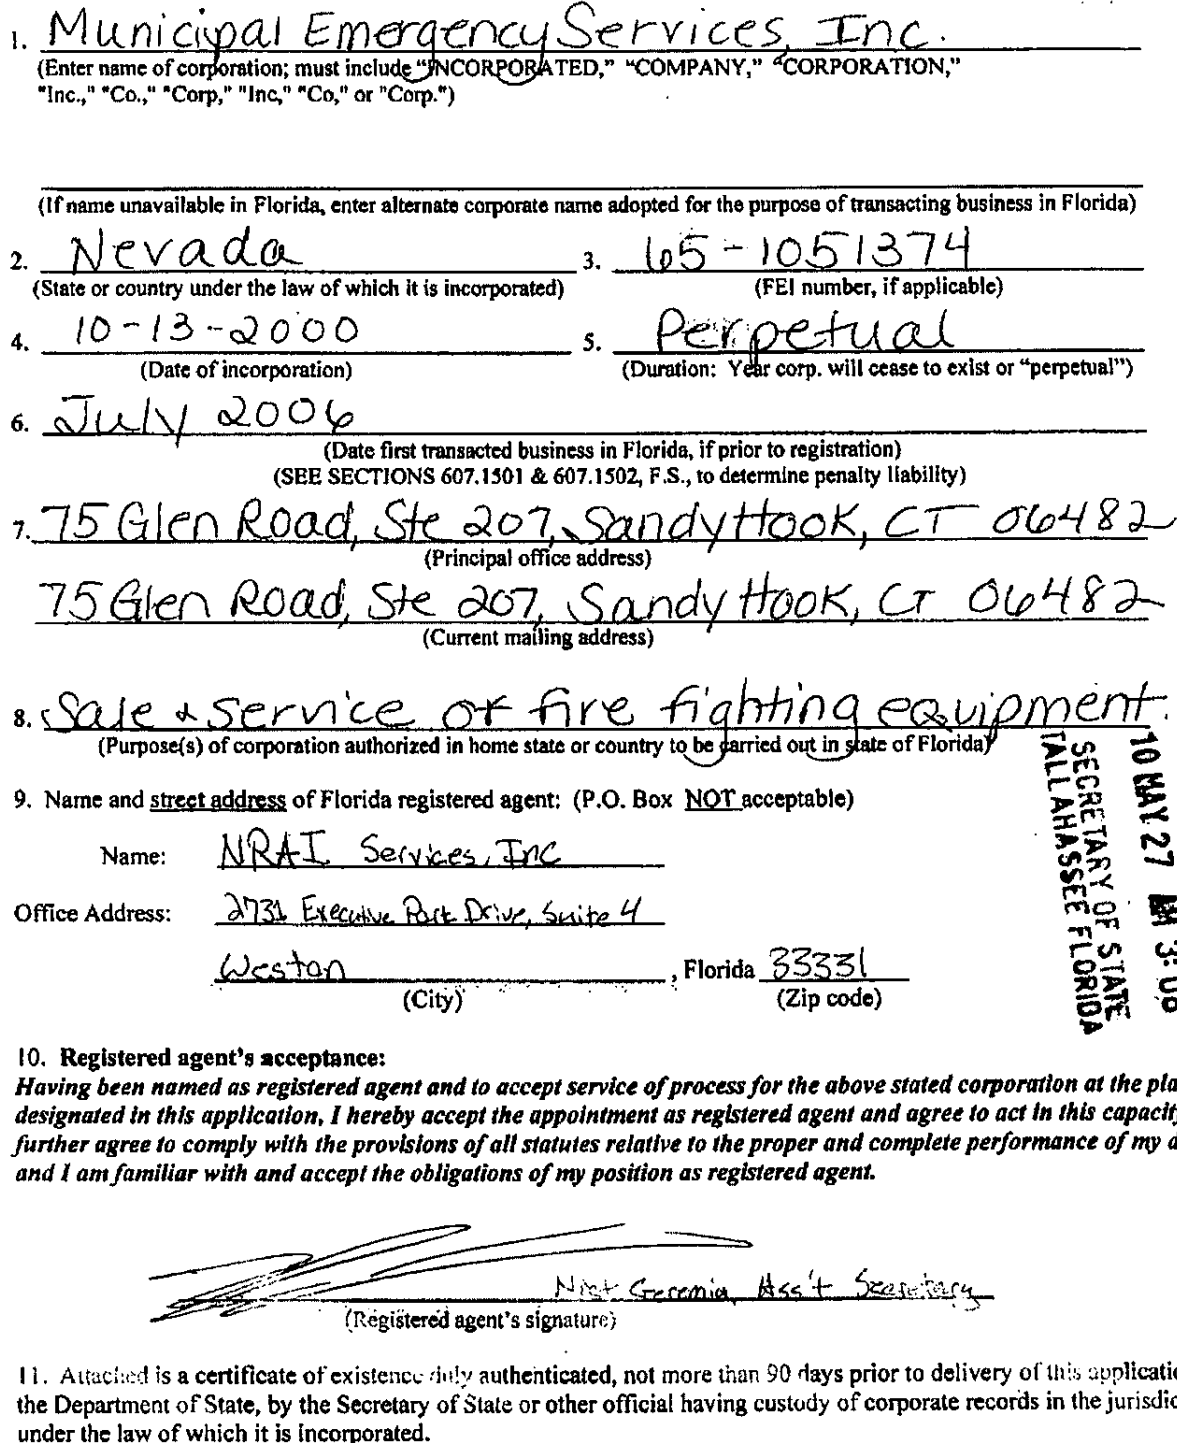 1. Municipal Emergency Services, Inc.
(Enter name of corporation; must include "INCORPORATED," "COMPANY," "CORPORATION,"
"Inc.," "Co.," "Corp," "Inc," "Co," or "Corp.")
(If name unavailable in Florida, enter alternate corporate name adopted for the purpose of transacting business in Florida)
2. Nevada 3. 65-1051374
(State or country under the law of which it is incorporated) (FEI number, if applicable)
4. 10-13-2000 5. Perpetual
(Date of incorporation) (Duration: Year corp. will cease to exist or "perpetual")
6. July 2006
(Date first transacted business in Florida, if prior to registration)
(SEE SECTIONS 607.1501 & 607.1502, F.S., to determine penalty liability)
7. 75 Glen Road, Ste 207, Sandy Hook, CT 06482
(Principal office address)
75 Glen Road, Ste 207, Sandy Hook, CT 06482
(Current mailing address)
8. Sale & service of fire fighting equipment.
(Purpose(s) of corporation authorized in home state or country to be carried out in state of Florida)
9. Name and street address of Florida registered agent: (P.O. Box NOT acceptable)
Name: NRAI Services, Inc
Office Address: 2731 Executive Park Drive, Suite 4
Weston , Florida 33331
(City) (Zip code)
10 MAY 27 3:06
SECRETARY OF STATE
TALLAHASSEE FLORIDA
10. Registered agent's acceptance:
Having been named as registered agent and to accept service of process for the above stated corporation at the pla
designated in this application, I hereby accept the appointment as registered agent and agree to act in this capacity
further agree to comply with the provisions of all statutes relative to the proper and complete performance of my d
and I am familiar with and accept the obligations of my position as registered agent.
Geremia, Ass't Secretary
(Registered agent's signature)
11. Attached is a certificate of existence duly authenticated, not more than 90 days prior to delivery of this applicatio
the Department of State, by the Secretary of State or other official having custody of corporate records in the jurisdic
under the law of which it is incorporated.